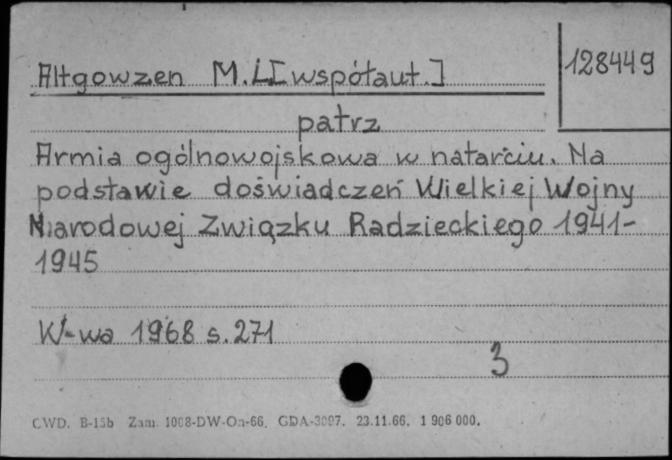 Altgowzen M.L[współaut.]
128449
patrz
Armia ogólnowojskowa w natarciu. Na
podstawie doświadczeń Wielkiej Wojny
Narodowej Związku Radzieckiego 1941-
1945
W-wa 1968 s. 271
3
CWD. B-15b Zam. 1008-DW-On-66. GDA-3097. 23.11.66. 1 906 000.